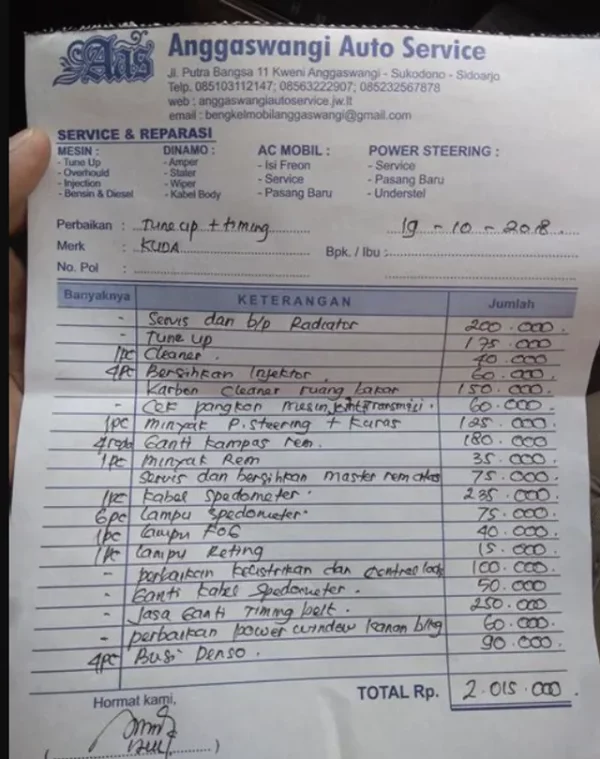 Aas
Anggaswangi Auto Service
Jl. Putra Bangsa 11 Kweni Anggaswangi - Sukodono - Sidoarjo
Telp. 085103112147; 08563222907; 085232567878
web : anggaswangiautoservice.jw.lt
email : bengkelmobilanggaswangi@gmail.com
SERVICE & REPARASI
MESIN : DINAMO : AC MOBIL : POWER STEERING :
- Tune Up - Amper - Isi Freon - Service
- Overhould - Stater - Service - Pasang Baru
- Injection - Wiper - Pasang Baru - Understel
- Bensin & Diesel - Kabel Body
Perbaikan : Tune up + timing 19 - 10 - 2018
Merk : KUDA Bpk. / Ibu :
No. Pol :
Banyaknya KETERANGAN Jumlah
- Servis dan b/p Radiator 200.000.
- Tune up 175.000
1pc Cleaner. 40.000
4pc Bersihkan Injektor. 60.000.
Karbon cleaner ruang bakar 150.000.
- Cek pangkon mesin 60.000.
1pc Minyak P.steering + Kuras 125.000.
Ganti kampas rem. 180.000
1pc Minyak Rem 35.000.
Servis dan bersihkan master rem atas 75.000.
1pc Kabel Spedometer. 235.000
6pc Lampu Spedometer. 75.000
1pc Lampu FOG 40.000
1pc Lampu Reting 15.000.
- perbaikan kelistrikan dan 100.000
- Ganti kabel Spedometer. 50.000
- Jasa Ganti Timing belt. 250.000
- perbaikan power window kanan 60.000
4pc Busi Denso. 90.000
Hormat kami, TOTAL Rp. 2.015.000.